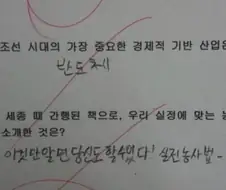 조선 시대의 가장 중요한 경제적 기반 산업은
반도체
세종 때 간행된 책으로, 우리 실정에 맞는 농
소개한 것은?
이것만 알면 당신도 할 수 있다! 실전 농사법-